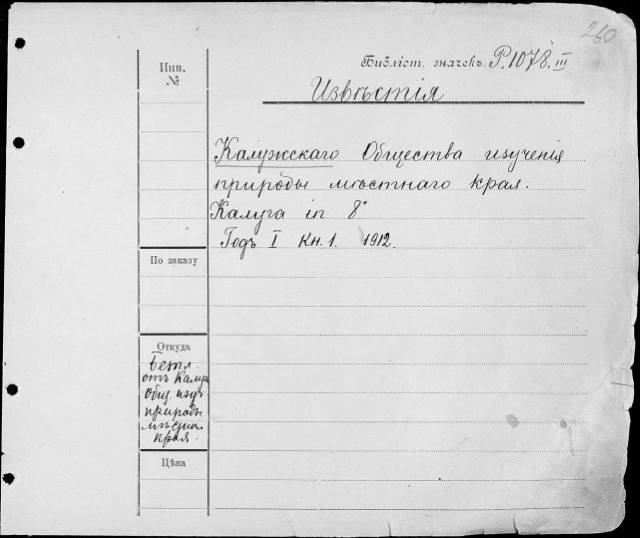 260
Инв.
№
Библіот. значекъ. Р.1078.III
Извѣстія
Калужскаго Общества изученія
природы мѣстнаго края.
Калуга in 8°
Годъ I Кн.1. 1912.
По заказу
Откуда
отъ Калуж
Общ. изуч
природы
мѣстн.
края.
Цѣна